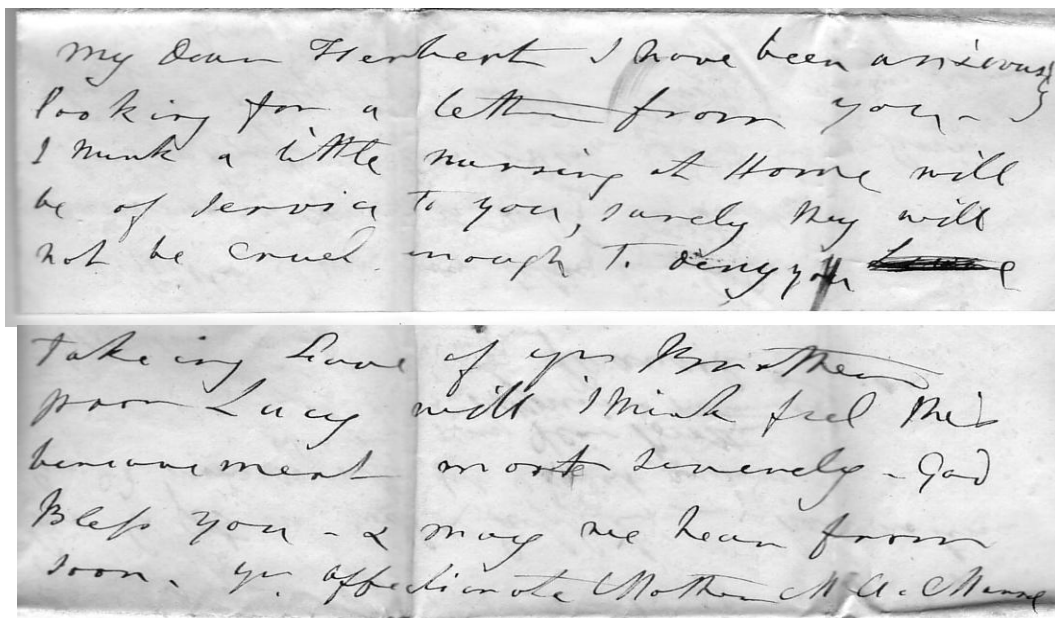 My Dear Herbert I have been anxiously
looking for a letter from you -
I think a little nursing at Home will
be of service to you, surely they will
not be cruel enough to deny you
takeing Leave of yr Brother
poor Lucy will I think feel this
bereavement most severely - God
Bless you - & may we hear from
soon. yr affectionate Mother M A